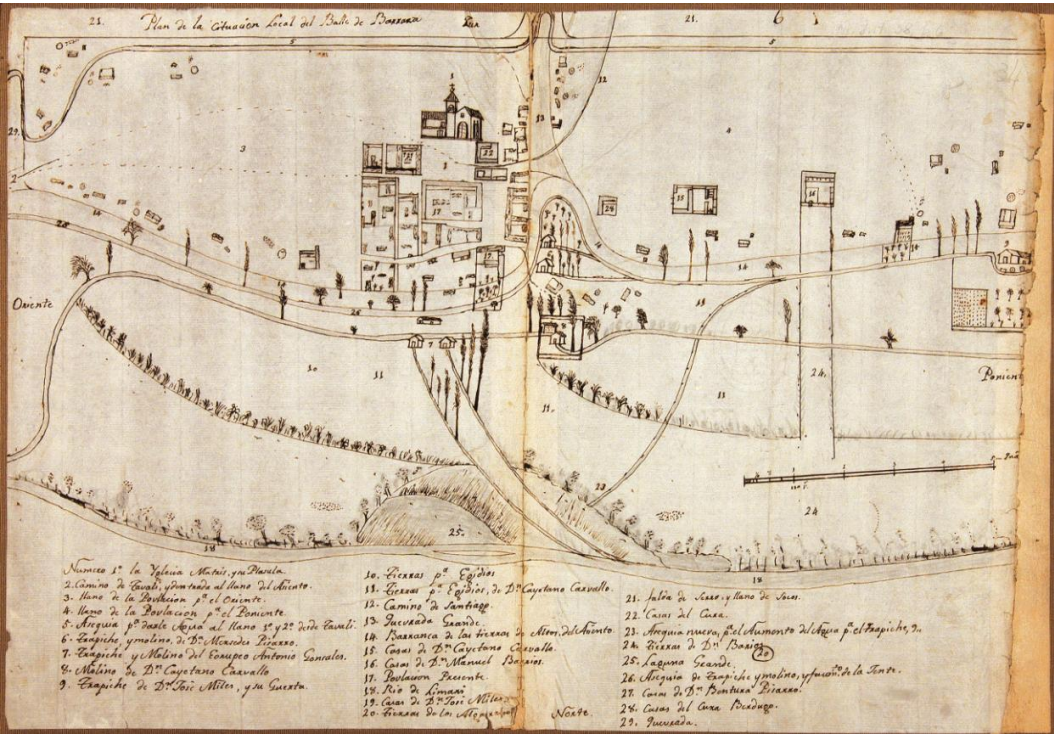 21.
Plan de la Cituacion Local del Balle de Barrasa
Sur
21.
6
5
5
12
13
29.
3
4
1
2
22
15
16
17
28
14
26
14
Oriente
10
11
7
11
11.
11
24.
Poniente
23
24
25.
18
18
Numero 1º la Yglecia Matris, y su Plasula.
2. Camino de Tavali, y entrada al llano del Asiento.
3. llano de la Povlacion pª el Oriente.
4. llano de la Povlacion pª el Poniente.
5. Asequia pª darle Agua al llano 1º y 2º desde Tavali.
6. Trapiche, y molino, de Dª Mersedes Pisarro
7. Trapiche, y Molino del Eoropeo Antonio Gonsales.
8. Molino de Dⁿ Cayetano Carvallo
9. Trapiche de Dⁿ José Miles, y su Guerta.
10. Tierras pª Egidios
11. Tierras pª Egidios, de Dⁿ Cayetano Carvallo.
12. Camino de Santiago.
13. Quevrada Grande.
14. Barranca de las tierras de Alon. del Asiento
15. Casas de Dⁿ Cayetano Carvallo.
16. Casas de Dⁿ Manuel Barrios.
17. Povlacion Presente.
18. Rio de Limari
19. Casas de Dⁿ José Miles
20. Tierras de los
Norte.
21. falda de Serro, y llano de Secos.
22. Casas del Cura.
23. Asequia nueva, pª el Aumento del Agua pª el Trapiche,
24. Tierras de Dⁿ Barios
20
25. Laguna Grande.
26. Asequia de Trapiche y molino, y de la Jente.
27. Casas de Dⁿ Bentura Pisarro.
28. Casas del Cura Berdugo.
29. Quevrada.